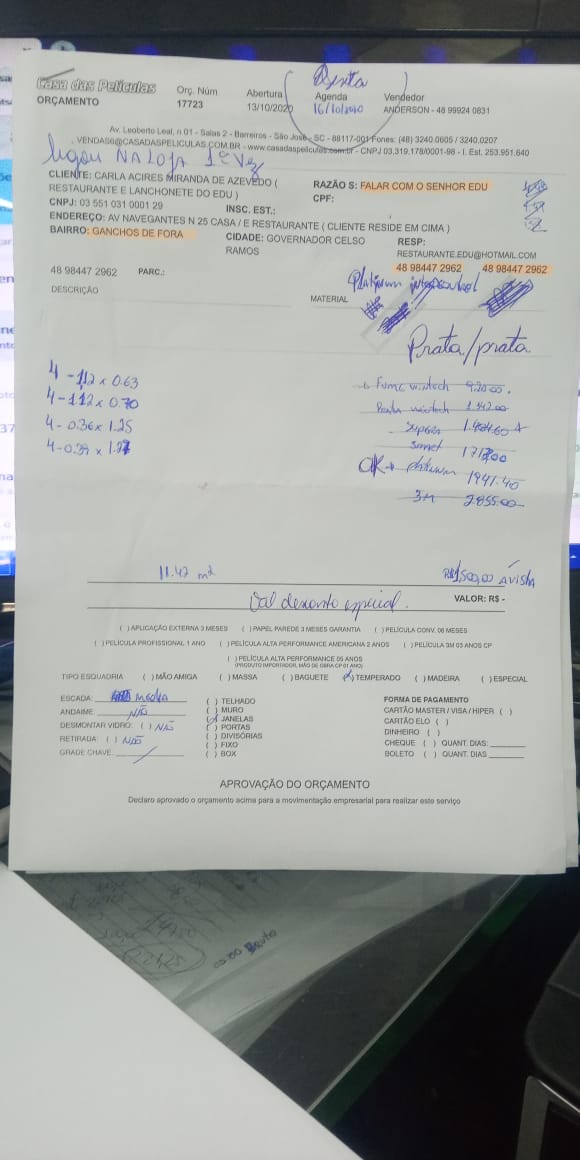 Casa das Películas
ORÇAMENTO
Orç. Núm
17723
Abertura
13/10/2020
Agenda
16/10/2020
Vendedor
ANDERSON - 48 99924 0831
Av. Leoberto Leal, n 01 - Salas 2 - Barreiros - São José - SC - 88117-001 Fones: (48) 3240.0605 / 3240.0207
VENDAS6@CASADASPELICULAS.COM.BR - www.casadaspeliculas.com.br - CNPJ 03.319.178/0001-98 - I. Est. 253.951.640
ligou NA LOJA 1ª Vez
CLIENTE: CARLA ACIRES MIRANDA DE AZEVEDO (
RESTAURANTE E LANCHONETE DO EDU )
RAZÃO S: FALAR COM O SENHOR EDU
CNPJ: 03 551 031 0001 29
INSC. EST.:
CPF:
ENDEREÇO: AV NAVEGANTES N 25 CASA / E RESTAURANTE ( CLIENTE RESIDE EM CIMA )
BAIRRO: GANCHOS DE FORA
CIDADE: GOVERNADOR CELSO
RAMOS
RESP:
RESTAURANTE.EDU@HOTMAIL.COM
48 98447 2962 48 98447 2962
48 98447 2962 PARC.:
DESCRIÇÃO
MATERIAL
Platinum
Prata/prata
4 - 1,12 x 0.63
4 - 1.12 x 0.70
4 - 0.36 x 1.25
4 - 0.39 x 1.27
1.542.00
1941.40
3M 2855.00
11.42 m²
R$1,500,00 Á vista
VALOR: R$ -
desconto especial.
( ) APLICAÇÃO EXTERNA 3 MESES ( ) PAPEL PAREDE 3 MESES GARANTIA ( ) PELÍCULA CONV. 06 MESES
( ) PELÍCULA PROFISSIONAL 1 ANO ( ) PELÍCULA ALTA PERFORMANCE AMERICANA 2 ANOS ( ) PELÍCULA 3M 03 ANOS CP
( ) PELÍCULA ALTA PERFORMANCE 05 ANOS
(PRODUTO IMPORTADOR, MÃO DE OBRA CP 01 ANO)
TIPO ESQUADRIA ( ) MÃO AMIGA ( ) MASSA ( ) BAGUETE (x) TEMPERADO ( ) MADEIRA ( ) ESPECIAL
ESCADA: média
ANDAIME: NÃO
DESMONTAR VIDRO: ( ) NÃO
RETIRADA: ( ) NÃO
GRADE CHAVE:
( ) TELHADO
( ) MURO
(x) JANELAS
( ) PORTAS
( ) DIVISÓRIAS
( ) FIXO
( ) BOX
FORMA DE PAGAMENTO
CARTÃO MASTER / VISA / HIPER ( )
CARTÃO ELO ( )
DINHEIRO ( )
CHEQUE ( ) QUANT. DIAS:
BOLETO ( ) QUANT. DIAS
APROVAÇÃO DO ORÇAMENTO
Declaro aprovado o orçamento acima para a movimentação empresarial para realizar este serviço